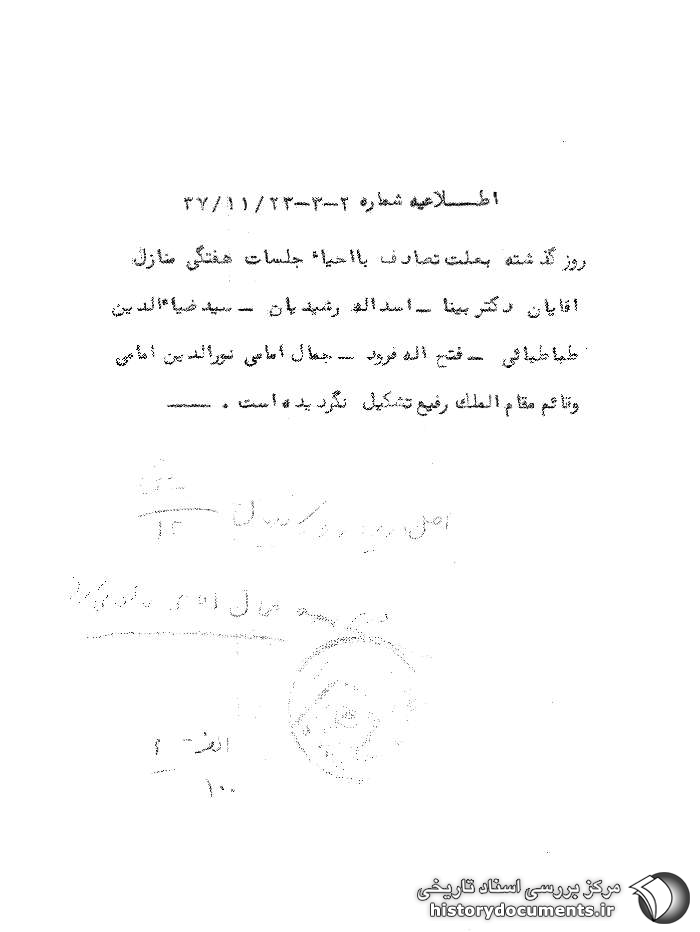 اطـــلاعیه شماره ۲-۳-۳۷/۱۱/۲۳
روز گذشته بعلت تصادف بااحیاء جلسات هفتگی منازل
اقایان دکتر بینا ــ اسداله رشیدیان ــ سید ضیاءالدین
طباطبائی ــ فتح اله فرود ــ جمال امامی نورالدین امامی
وقائم مقام الملك رفیع تشکیل نگردیده است . ــــ
اصل در
۱۲
جمال امامی
الف - ۲
۱۰۰
مرکز بررسی اسناد تاریخی
historydocuments.ir